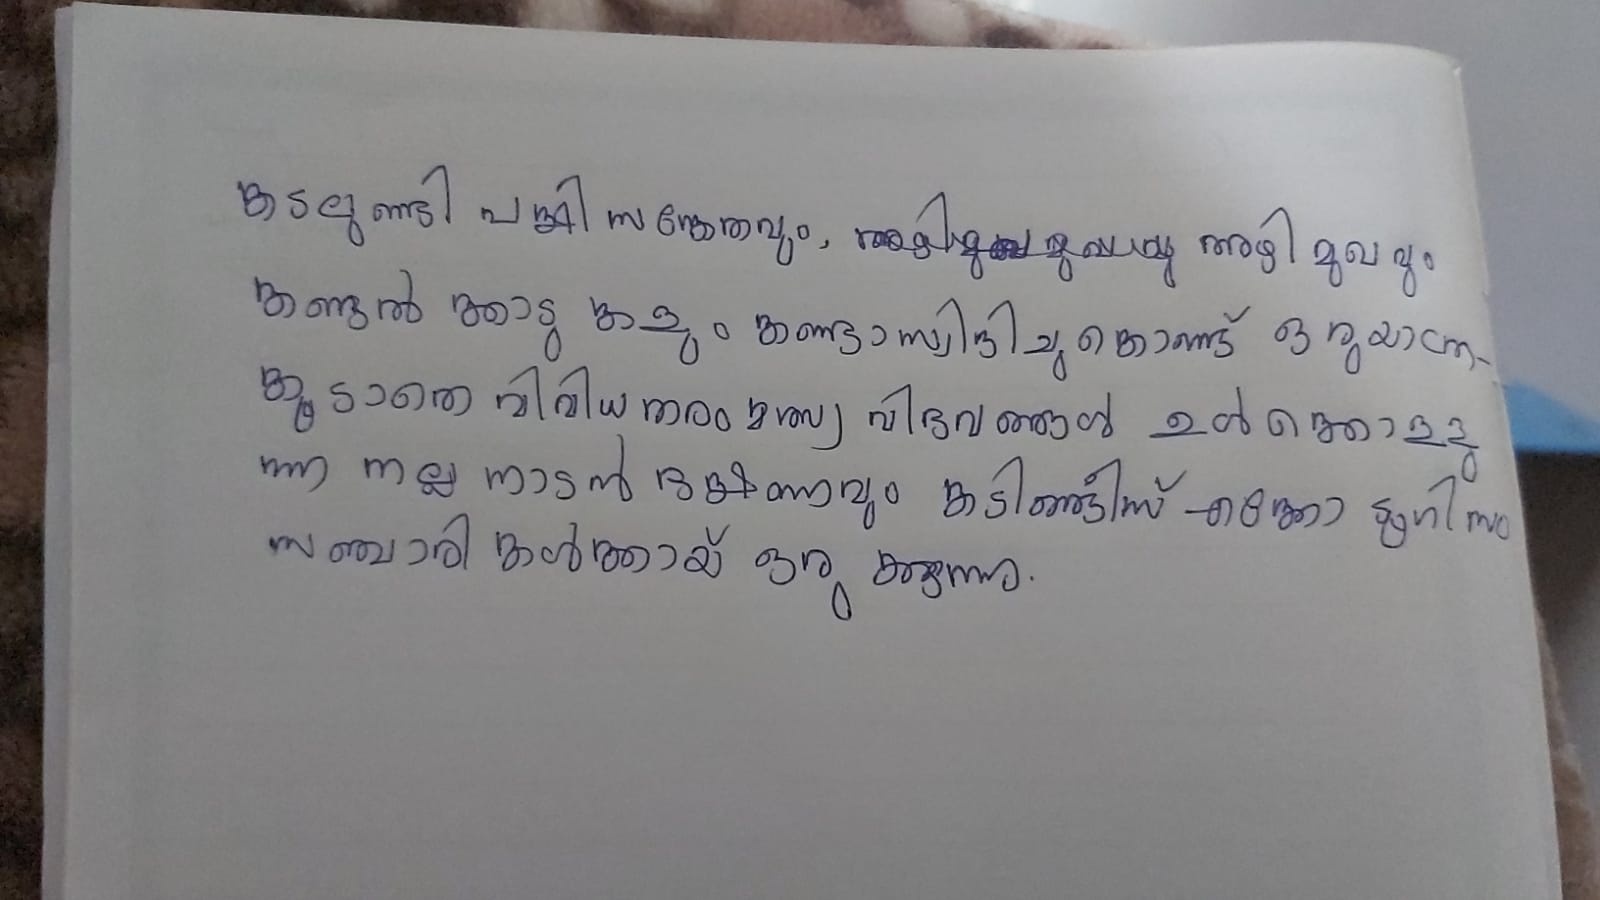 കടലുണ്ടി പക്ഷി സങ്കേതവും, അഴിമുഖവും
കണ്ടൽ ക്കാടു കളും കണ്ടാസ്വദിച്ചുകൊണ്ട് ഒരുയാത്ര
കൂടാതെ വിവിധ തരം മത്സ്യ വിഭവങ്ങൾ ഉൾക്കൊള്ളു
ന്ന നല്ല നാടൻ ഭക്ഷണവും ഇക്കോ ടൂറിസം
സഞ്ചാരി കൾക്കായ് ഒരു